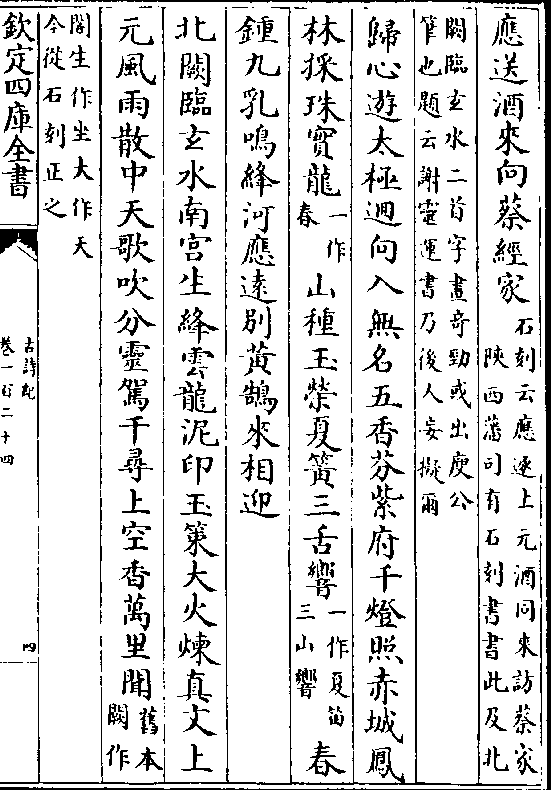 應送酒來向蔡經家石刻云應逐上元酒同來訪蔡家陜西藩司有石刻書書此及北
闕臨玄水二首字畫奇勁或出庾公筆也題云謝靈運書乃後人妄擬爾
歸心遊太極迴向入無名五香芬紫府千燈照赤城鳳
林採珠實龍一作春山種玉榮夏簧三舌響一作夏笛三山響春
鍾九乳鳴絳河應遠別黃鵠來相迎
北闕臨玄水南宮生絳雲龍泥印玉策大火煉真文上
元風雨散中天歌吹分靈駕千尋上空香萬里聞舊本闕作
閣生作坐大作天今從石刻正之
欽定四庫全書
古詩紀
卷一百二十四
四